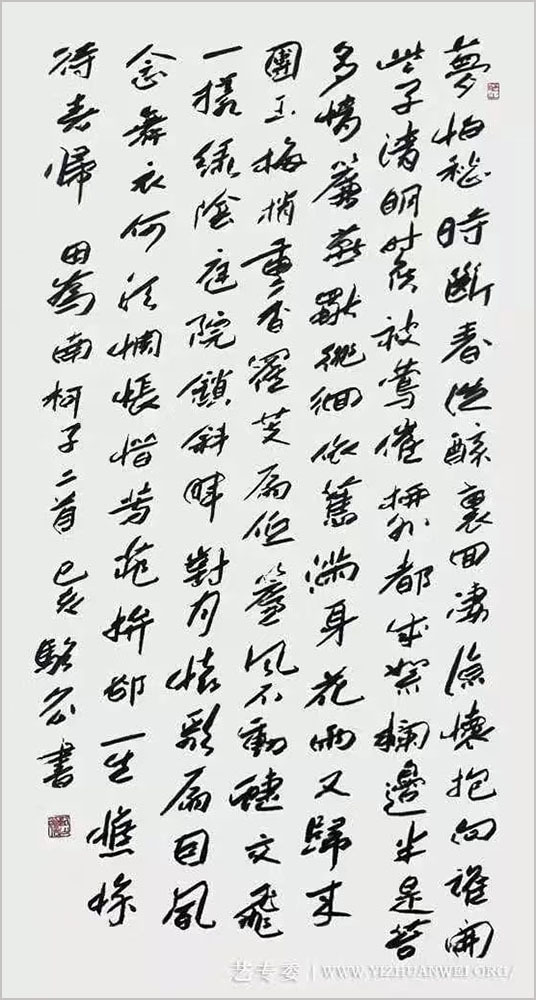 夢怕愁時斷春從醉裏回凄涼懷抱向誰開
些子清明時候被鶯催柳外都成絮欄邊半是苔
多情簾燕獨徘徊依舊滿身花雨又歸來
團玉梅梢重香羅芰扇低簾風不動蝶交飛
一樣綠陰庭院鎖斜暉對月懷歌扇因風
念舞衣何須惆悵惜芳菲拚卻一生憔悴
待春歸 田為南柯子二首 己亥 駱公書
艺专委 | WWW.YIZHUANWEI.ORG/